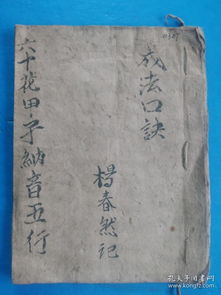 成法口訣
楊春然记
六十花甲子納音五行
孔夫子旧书网